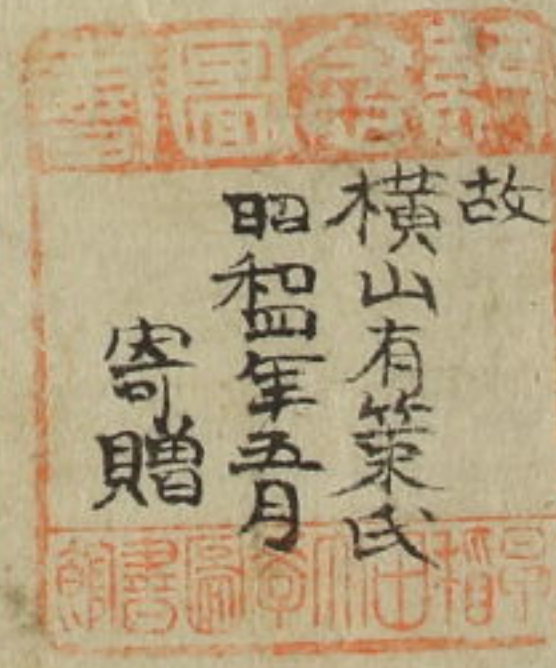 寄金圖書
故
横山有策氏
昭和四年五月
寄贈
早稲田大学圖書館